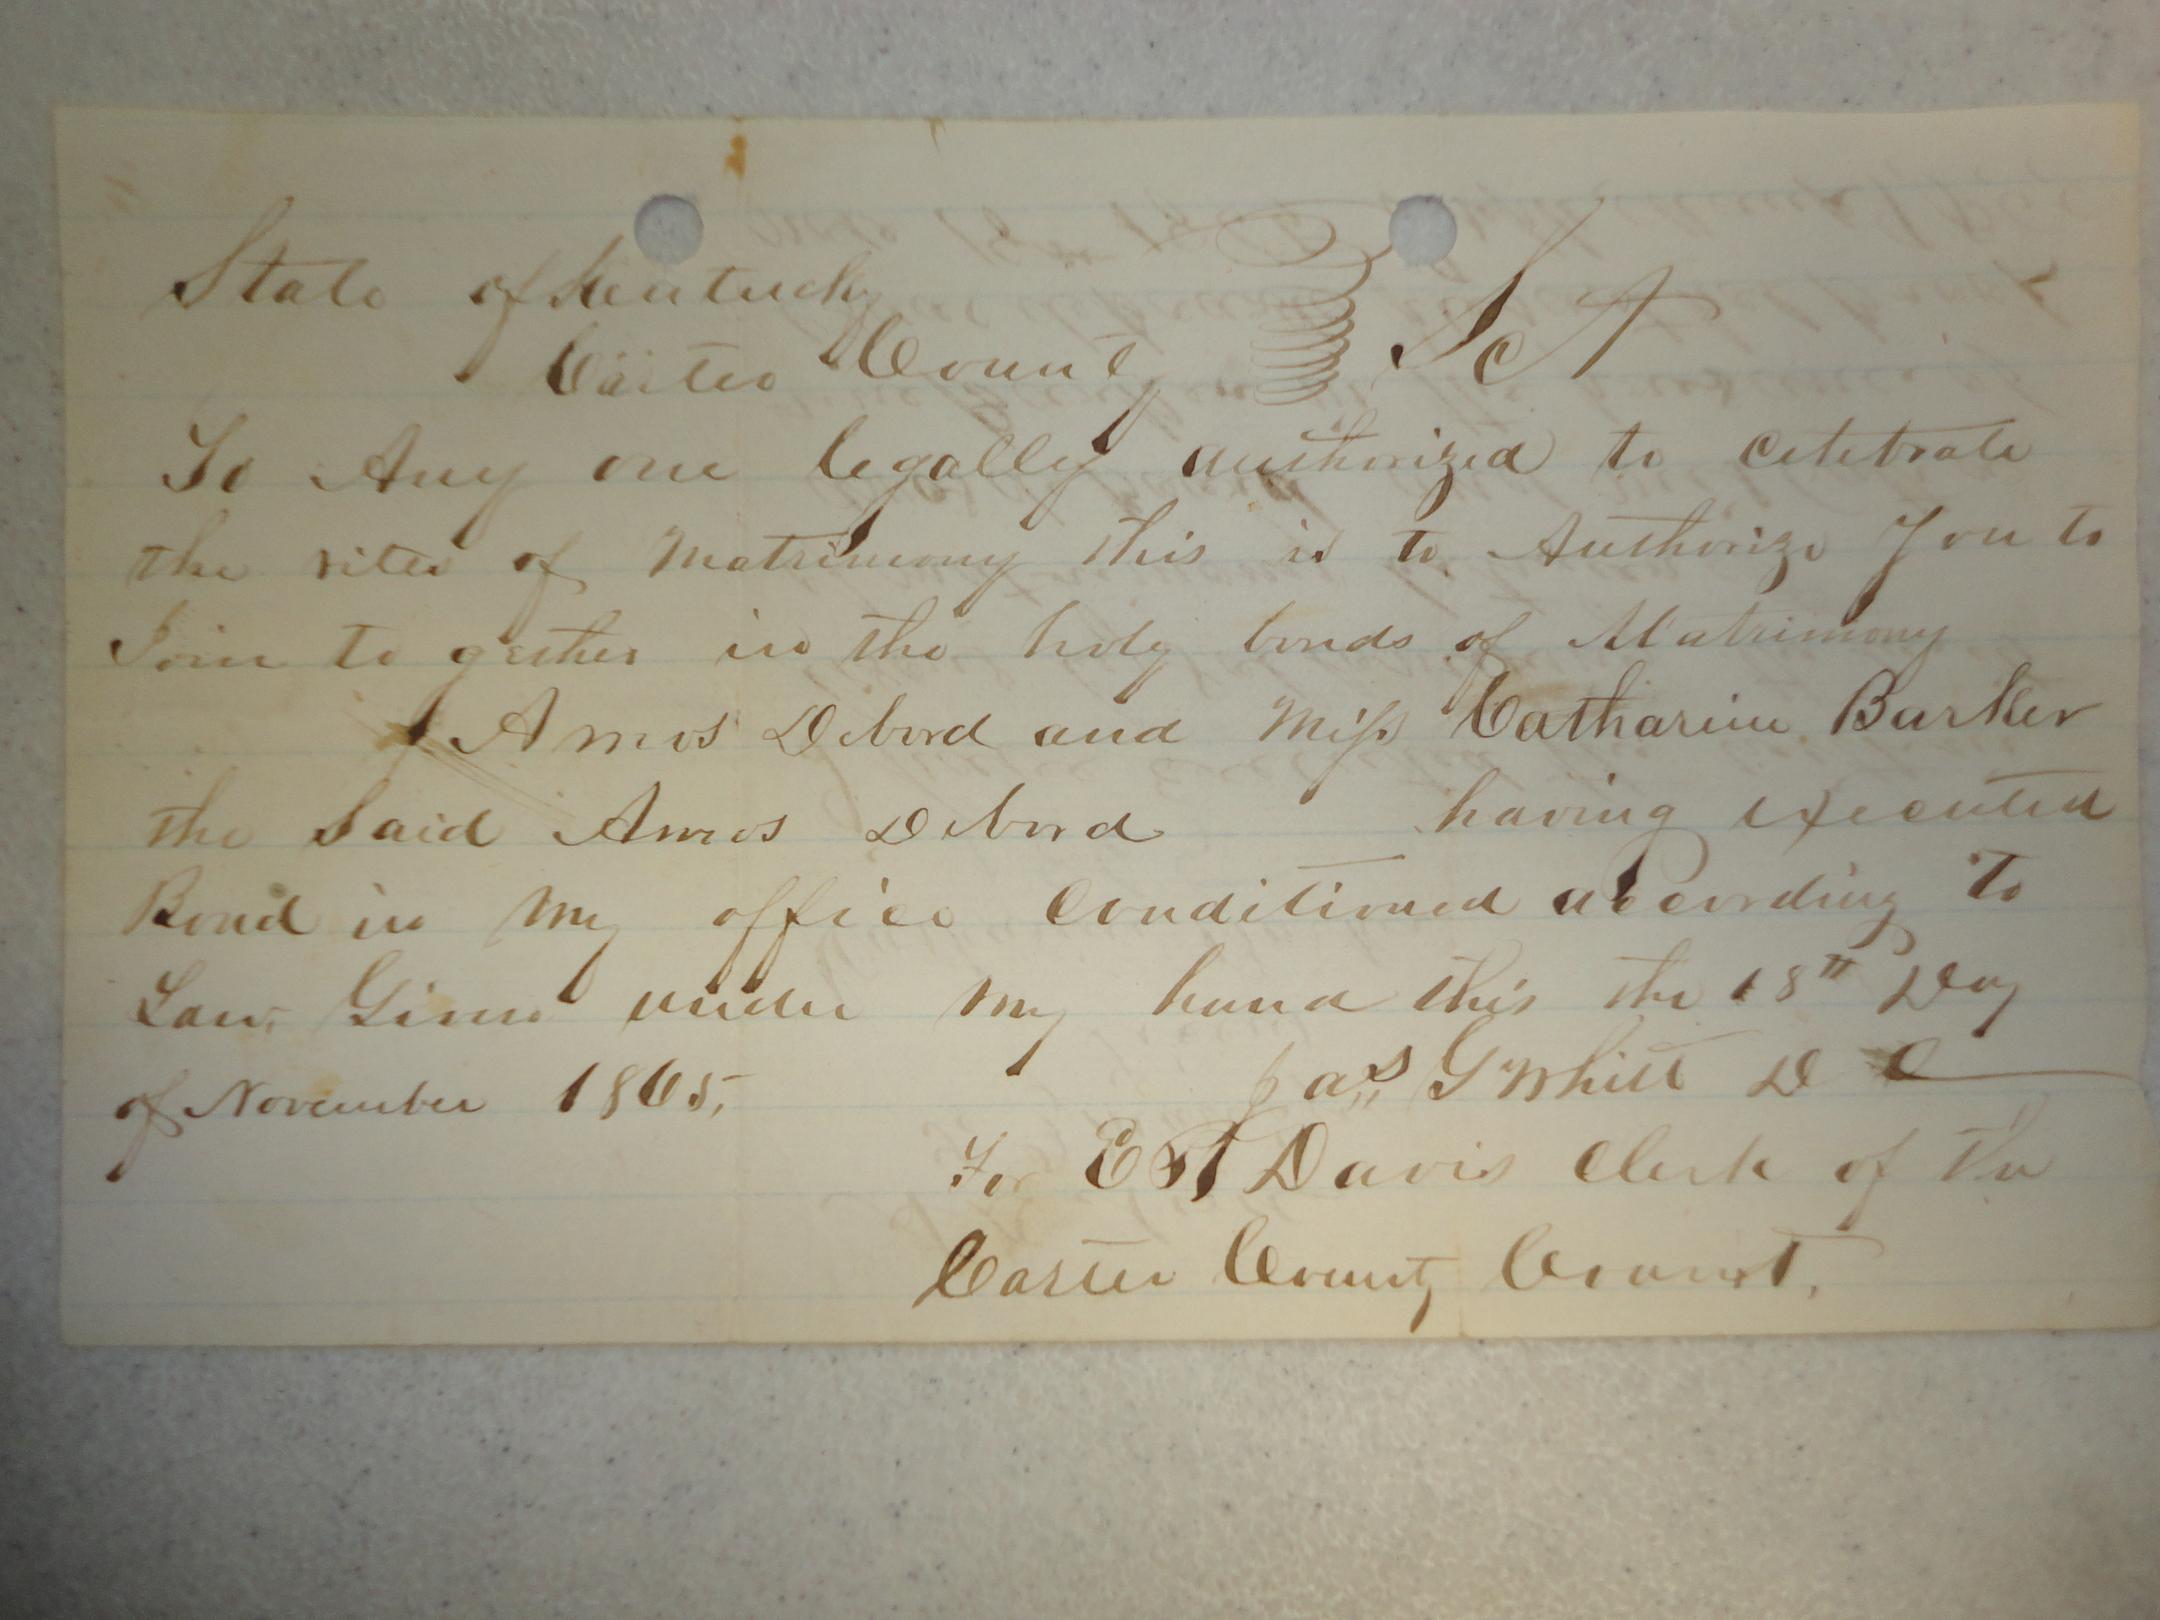 State of Kentucky
Carter County } Sct
To Any one legally authorized to celebrate
the rites of Matrimony this is to Authorize You to
Join to gether in the holy bonds of Matrimony
Amos Debord and Miss Catharine Barker
the Said Amos Debord having executed
Bond in My office Conditioned according to
Law, Given under my hand this the 18th Day
of November 1865,
Jas G Whitt D C
For E Davis Clerk of the
Carter County Court,